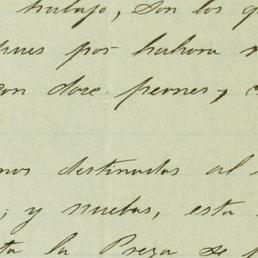 trabajo, son los q
pues por hahora n
con doce peones, y
nos destinados al
; y nuebas, esta
ta la Presa se p